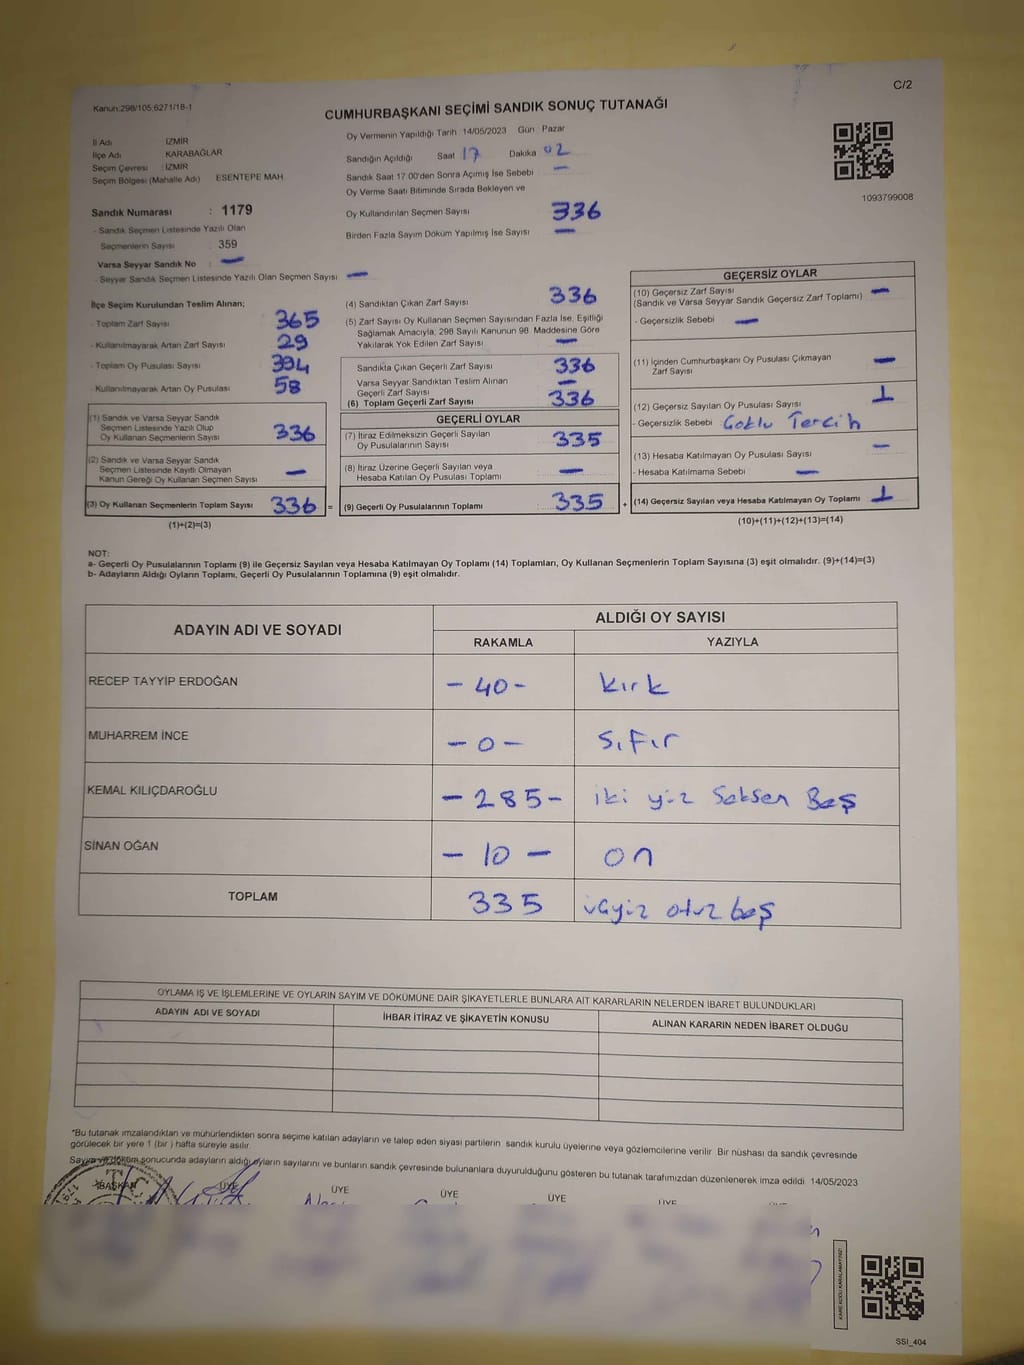 C/2
Kanun:298/105;6271/18-1
CUMHURBAŞKANI SEÇİMİ SANDIK SONUÇ TUTANAĞI
İl Adı İZMİR
İlçe Adı KARABAĞLAR
Seçim Çevresi : İZMİR
Seçim Bölgesi (Mahalle Adı) ESENTEPE MAH
Sandık Numarası : 1179
- Sandık Seçmen Listesinde Yazılı Olan
Seçmenlerin Sayısı : 359
Varsa Seyyar Sandık No : —
- Seyyar Sandık Seçmen Listesinde Yazılı Olan Seçmen Sayısı —
Oy Vermenin Yapıldığı Tarih 14/05/2023 Gün Pazar
Sandığın Açıldığı Saat 17 Dakika 02
Sandık Saat 17:00'den Sonra Açımış İse Sebebi —
Oy Verme Saati Bitiminde Sırada Bekleyen ve
Oy Kullandırılan Seçmen Sayısı 336
Birden Fazla Sayım Döküm Yapılmış İse Sayısı —
1093799008
İlçe Seçim Kurulundan Teslim Alınan;
- Toplam Zarf Sayısı 365
- Kullanılmayarak Artan Zarf Sayısı 29
- Toplam Oy Pusulası Sayısı 394
- Kullanılmayarak Artan Oy Pusulası 58
(1) Sandık ve Varsa Seyyar Sandık
Seçmen Listesinde Yazılı Olup
Oy Kullanan Seçmenlerin Sayısı 336
(2) Sandık ve Varsa Seyyar Sandık
Seçmen Listesinde Kayıtlı Olmayan
Kanun Gereği Oy Kullanan Seçmen Sayısı —
(3) Oy Kullanan Seçmenlerin Toplam Sayısı 336 =
(1)+(2)=(3)
(4) Sandıktan Çıkan Zarf Sayısı 336
(5) Zarf Sayısı Oy Kullanan Seçmen Sayısından Fazla İse, Eşitliği
Sağlamak Amacıyla, 298 Sayılı Kanunun 98. Maddesine Göre
Yakılarak Yok Edilen Zarf Sayısı —
Sandıkta Çıkan Geçerli Zarf Sayısı 336
Varsa Seyyar Sandıktan Teslim Alınan
Geçerli Zarf Sayısı —
(6) Toplam Geçerli Zarf Sayısı 336
GEÇERLİ OYLAR
(7) İtiraz Edilmeksizin Geçerli Sayılan
Oy Pusulasının Sayısı 335
(8) İtiraz Üzerine Geçerli Sayılan veya
Hesaba Katılan Oy Pusulası Toplamı —
(9) Geçerli Oy Pusulalarının Toplamı 335 +
GEÇERSİZ OYLAR
(10) Geçersiz Zarf Sayısı —
(Sandık ve Varsa Seyyar Sandık Geçersiz Zarf Toplamı)
- Geçersizlik Sebebi —
(11) İçinden Cumhurbaşkanı Oy Pusulası Çıkmayan
Zarf Sayısı —
(12) Geçersiz Sayılan Oy Pusulası Sayısı 1
- Geçersizlik Sebebi Çoklu Tercih
(13) Hesaba Katılmayan Oy Pusulası Sayısı —
- Hesaba Katılmama Sebebi —
(14) Geçersiz Sayılan veya Hesaba Katılmayan Oy Toplamı 1
(10)+(11)+(12)+(13)=(14)
NOT:
a- Geçerli Oy Pusulalarının Toplamı (9) ile Geçersiz Sayılan veya Hesaba Katılmayan Oy Toplamı (14) Toplamları, Oy Kullanan Seçmenlerin Toplam Sayısına (3) eşit olmalıdır. (9)+(14)=(3)
b- Adayların Aldığı Oyların Toplamı, Geçerli Oy Pusulalarının Toplamına (9) eşit olmalıdır.
ADAYIN ADI VE SOYADI
ALDIĞI OY SAYISI
RAKAMLA YAZIYLA
RECEP TAYYİP ERDOĞAN - 40 - kırk
MUHARREM İNCE - 0 - sıfır
KEMAL KILIÇDAROĞLU - 285 - iki yüz Seksen Beş
SİNAN OĞAN - 10 - on
TOPLAM 335 üçyüz otuz beş
OYLAMA İŞ VE İŞLEMLERİNE VE OYLARIN SAYIM VE DÖKÜMÜNE DAİR ŞİKAYETLERLE BUNLARA AİT KARARLARIN NELERDEN İBARET BULUNDUKLARI
ADAYIN ADI VE SOYADI İHBAR İTİRAZ VE ŞİKAYETİN KONUSU ALINAN KARARIN NEDEN İBARET OLDUĞU
"Bu tutanak imzalandıktan ve mühürlendikten sonra seçime katılan adayların ve talep eden siyasi partilerin sandık kurulu üyelerine veya gözlemcilerine verilir. Bir nüshası da sandık çevresinde
görülecek bir yere 1 (bir ) hafta süreyle asılır.
Sayım ve döküm sonucunda adayların aldığı oyların sayılarını ve bunların sandık çevresinde bulunanlara duyurulduğunu gösteren bu tutanak tarafımızdan düzenlenerek imza edildi. 14/05/2023
BAŞKAN ÜYE ÜYE ÜYE ÜYE ÜYE
SSI_404